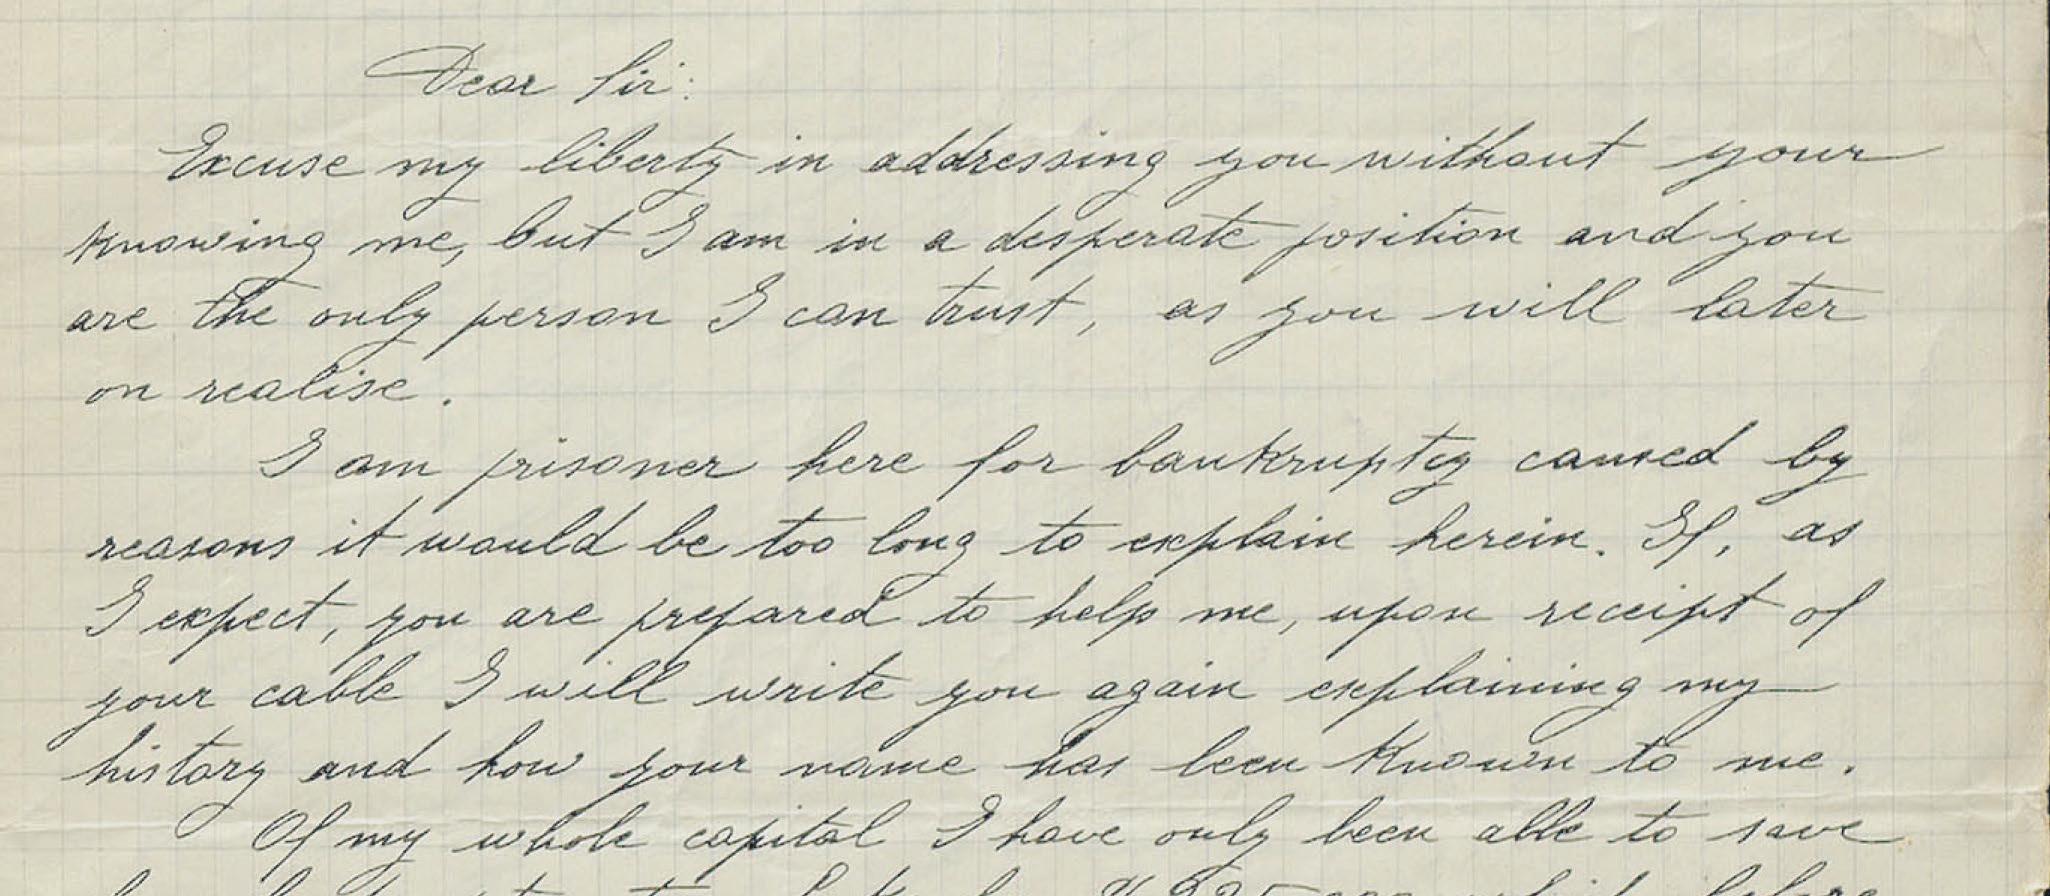 Dear Sir:
Excuse my liberty in addressing you without your
knowing me, but I am in a desperate position and you
are the only person I can trust, as you will later
on realise.
I am prisoner here for bankruptcy caused by
reasons it would be too long to explain herein. If, as
I expect, you are prepared to help me, upon receipt of
your cable I will write you again explaining my
history and how your name has been known to me.
Of my whole capital I have only been able to save